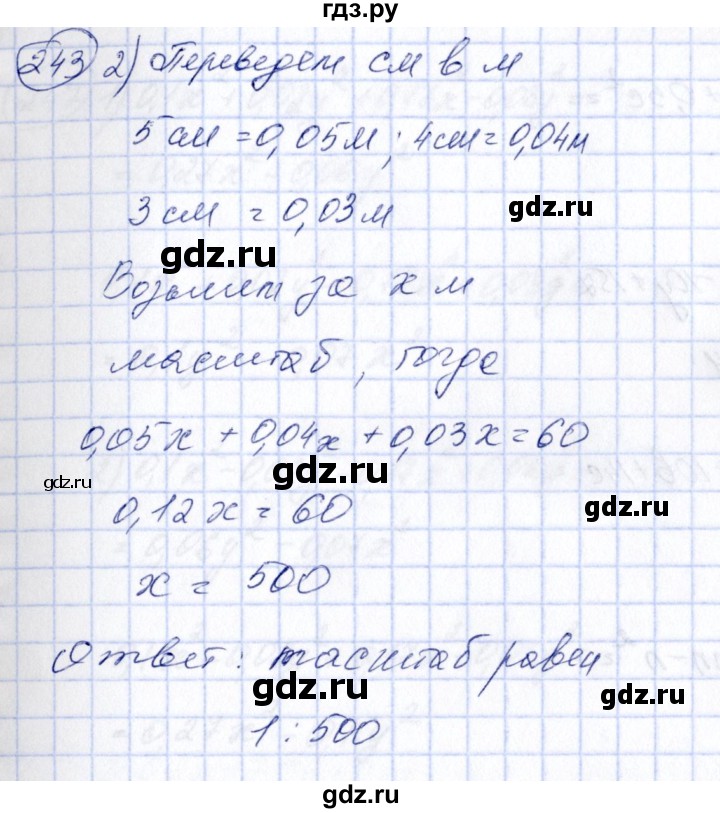 гдз.ру
243 2) Переведём см в м
5 см = 0,05м; 4см = 0,04м
3 см = 0,03м
gdz.ru
gdz.ru
Возьмем за х м
масштаб, тогда
0,05х + 0,04х + 0,03х = 60
gdz.ru
gdz.ru
0,12х = 60
gdz.ru
х = 500
Ответ: масштаб равен
gdz.ru
gdz.ru
1 : 500
gdz.ru